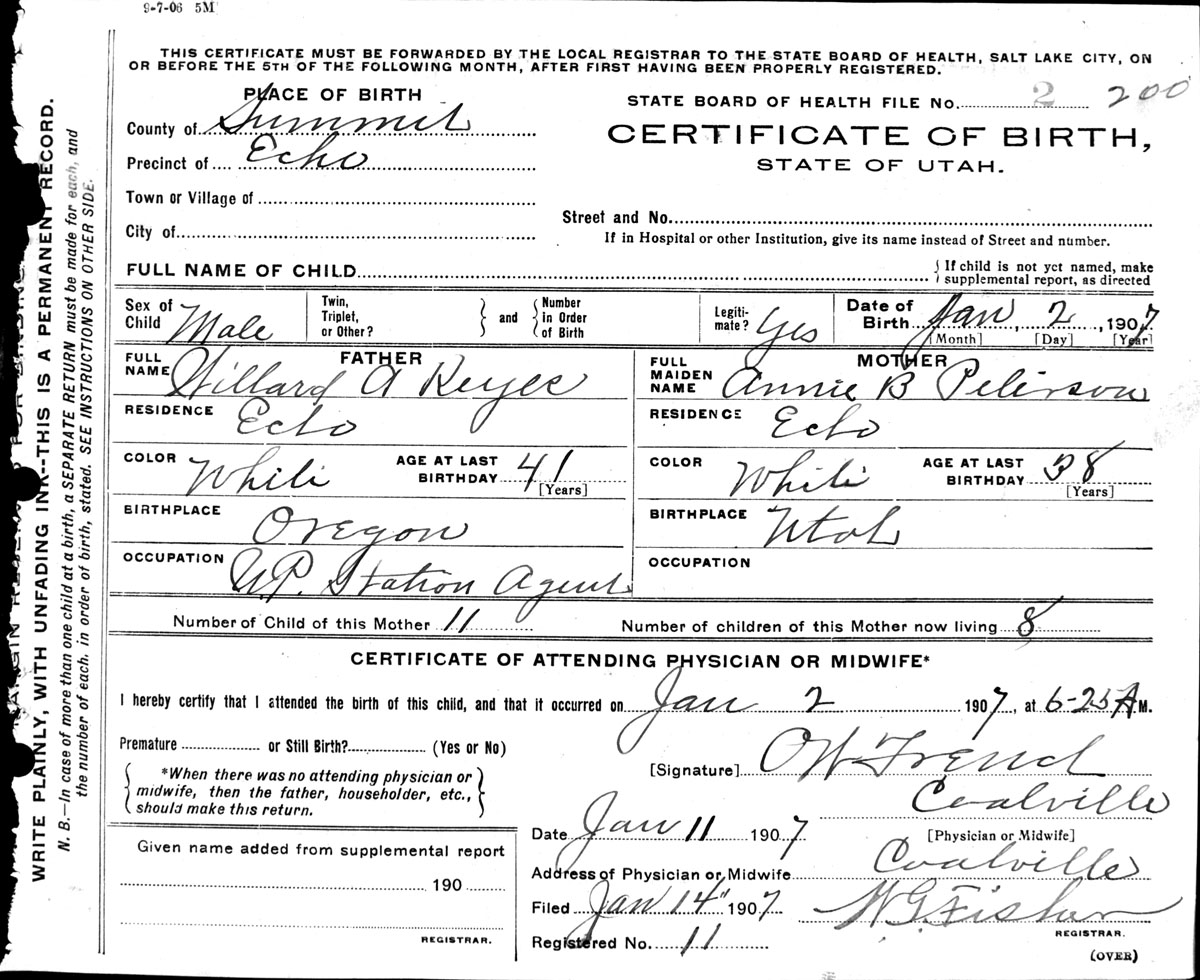 9-7-06 5M
THIS CERTIFICATE MUST BE FORWARDED BY THE LOCAL REGISTRAR TO THE STATE BOARD OF HEALTH, SALT LAKE CITY, ON
OR BEFORE THE 5TH OF THE FOLLOWING MONTH, AFTER FIRST HAVING BEEN PROPERLY REGISTERED.
PLACE OF BIRTH
STATE BOARD OF HEALTH FILE No. 2 200
County of Summit
CERTIFICATE OF BIRTH,
Precinct of Echo
STATE OF UTAH.
Town or Village of
Street and No.
City of
If in Hospital or other Institution, give its name instead of Street and number.
FULL NAME OF CHILD
{ If child is not yet named, make
supplemental report, as directed
Sex of Child Male
Twin, Triplet, or Other? } and { Number in Order of Birth
Legiti-mate? Yes
Date of Birth Jan, 2, 1907
[Month] [Day] [Year]
FATHER
FULL NAME Willard A Keyes
MOTHER
FULL MAIDEN NAME Annie B Peterson
RESIDENCE Echo
RESIDENCE Echo
COLOR White
AGE AT LAST BIRTHDAY 41
[Years]
COLOR White
AGE AT LAST BIRTHDAY 38
[Years]
BIRTHPLACE Oregon
BIRTHPLACE Utah
OCCUPATION U.P. Station Agent
OCCUPATION
Number of Child of this Mother 11
Number of children of this Mother now living 8
CERTIFICATE OF ATTENDING PHYSICIAN OR MIDWIFE*
I hereby certify that I attended the birth of this child, and that it occurred on Jan 2 1907, at 6-25 A M.
Premature or Still Birth? (Yes or No)
{ *When there was no attending physician or
midwife, then the father, householder, etc.,
should make this return. }
[Signature] O W French
Coalville
[Physician or Midwife]
Date Jan 11 1907
Address of Physician or Midwife Coalville
Filed Jan 14" 1907 W. G. Fisher
REGISTRAR.
Registered No. 11
(OVER)
Given name added from supplemental report
190
REGISTRAR.
WRITE PLAINLY, WITH UNFADING INK--THIS IS A PERMANENT RECORD.
N. B.—In case of more than one child at a birth, a SEPARATE RETURN must be made for each, and
the number of each, in order of birth, stated. SEE INSTRUCTIONS ON OTHER SIDE.